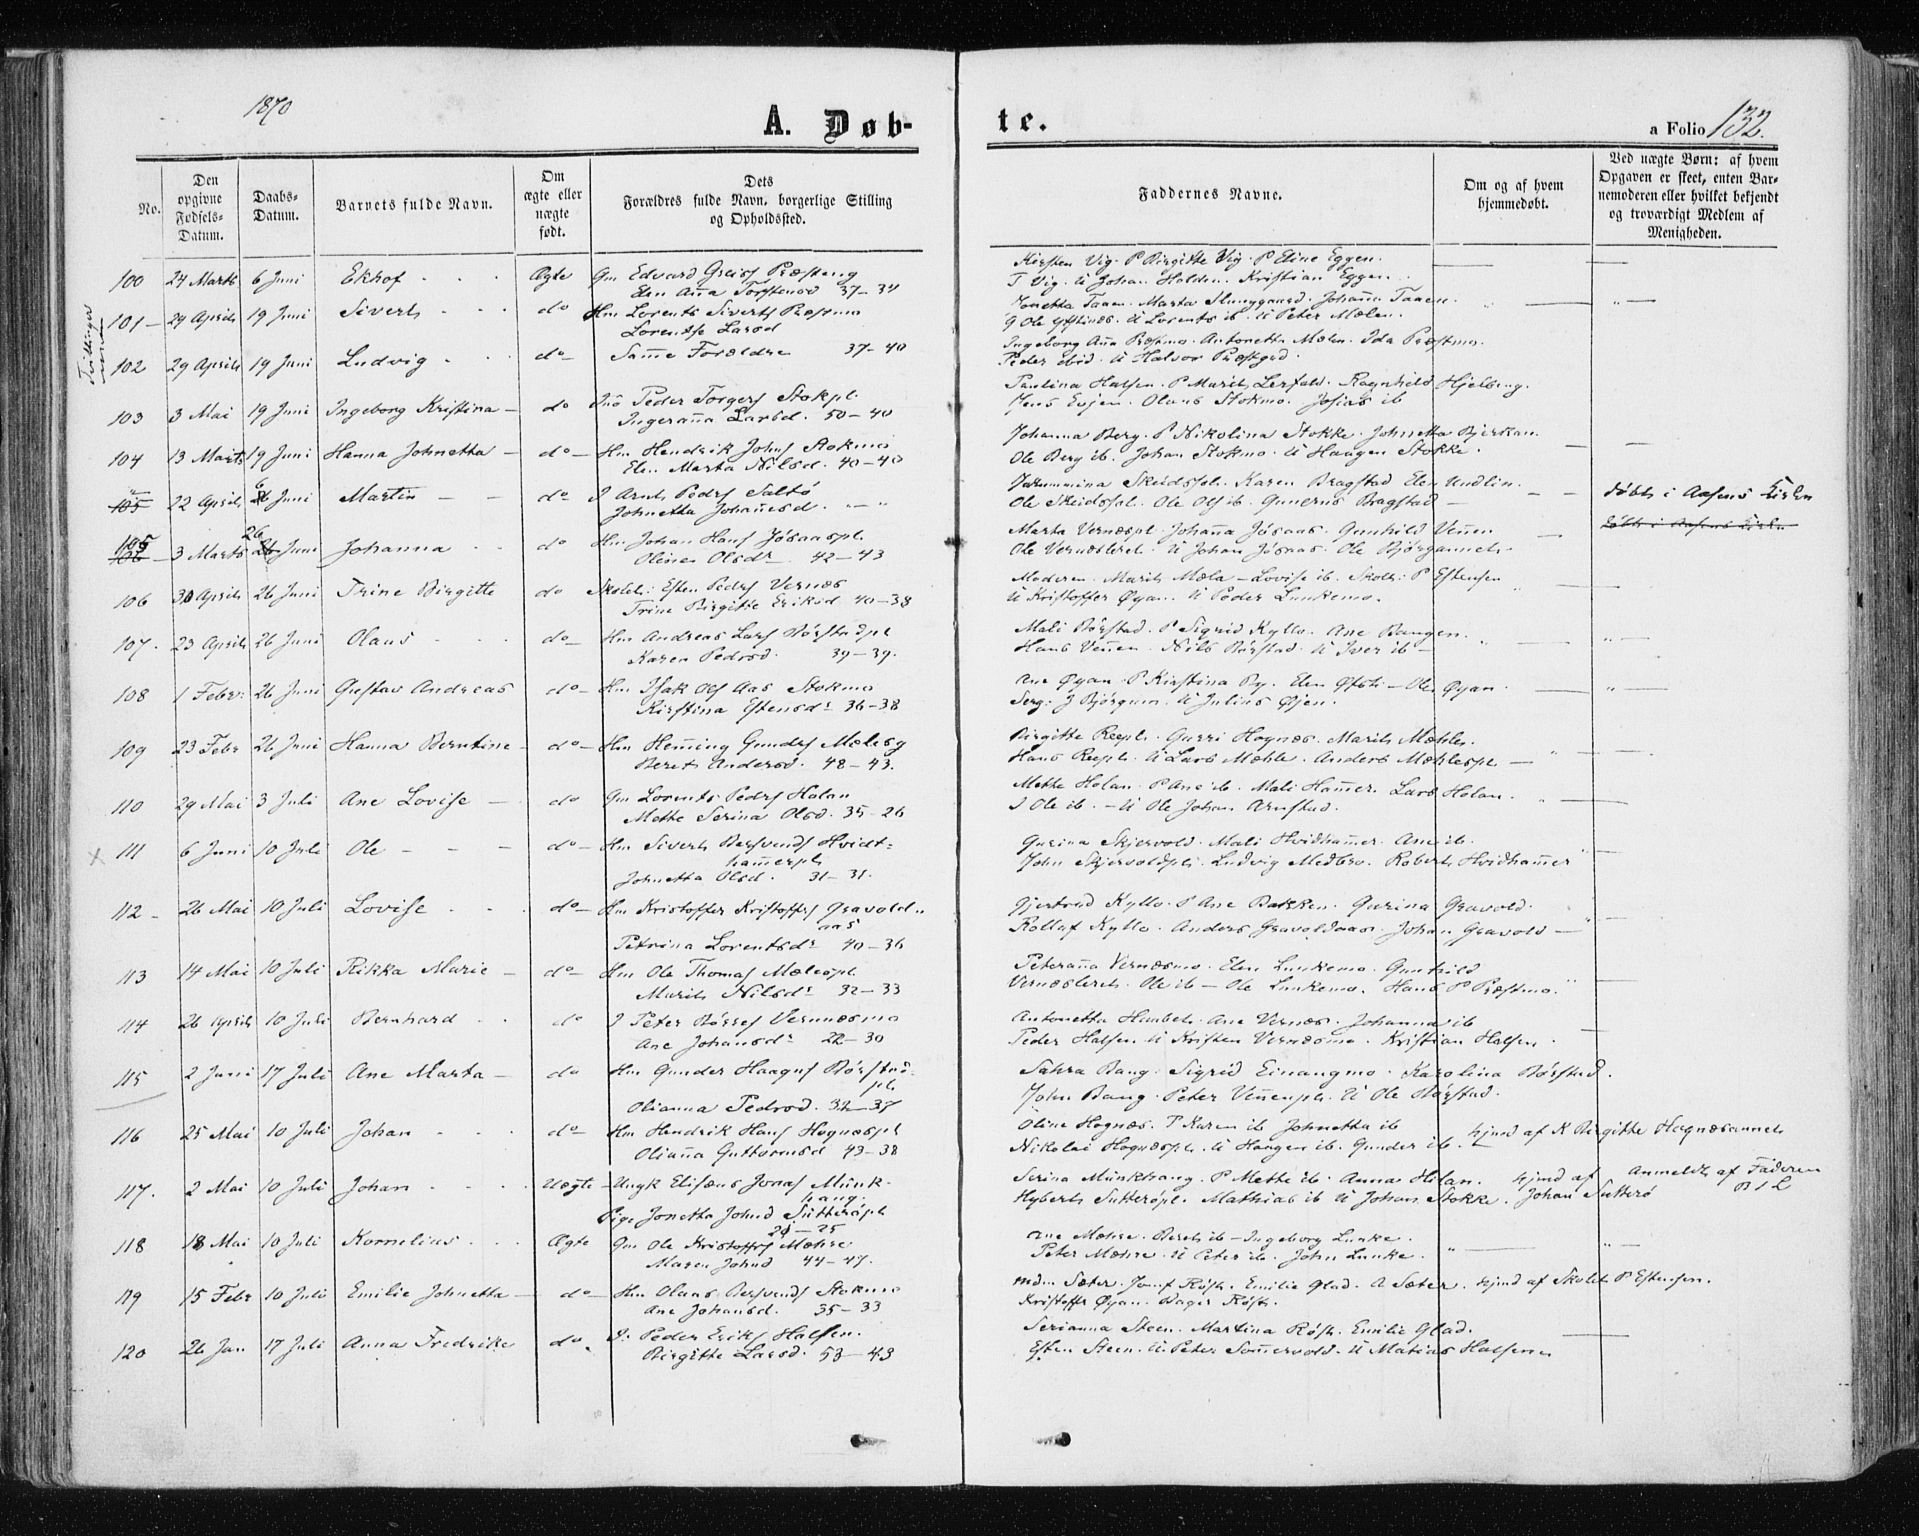 1870
A. Døb-
te.
a Folio 132.
No.
Den opgivne Fødsels-Datum.
Daabs-Datum.
Barnets fulde Navn.
Om ægte eller uægte født.
Dets Forældres fulde Navn, borgerlige Stilling og Opholdssted.
Faddernes Navne.
Om og af hvem hjemmedøbt.
Ved uægte Børn: af hvem Opgaven er skeet, enten Barnemoderen eller hvilket bekjendt og troværdigt Medlem af Menigheden.
100 24 Marts 6 Juni Ekhof Ægte Gm Edvard Præsteng
Elen Anna Torstensd 37-34
Kirsten Vig. P Birgitte Vig. P Eline Eggen.
T Vig. U Johan Halden. Kristian Eggen.
Tvillinger
101 29 Aprils 19 Juni Siverts do Hm Lorents Siverts Præsmo
Lorentse Larsd
Jonetta Taaen. Marta Johanna Taaen.
Lorents ib. U Peter Mælen.
102 29 Aprils 19 Juni Ludvig do Samme Forældre 37-40
Ingeborg Ana Præsmo. Antonetta Mælen. Ida Præstmo.
Peder ibid. U Halvor Præstgrd.
103 3 Mai 19 Juni Ingeborg Kristina do Peder Torgers Stokpl.
Ingerana Larsd. 50-40
Paulina Halsen. P Marits Lerfald. Ragnhild Hjelseng.
Jens Evjen. Olaus Stokmo. Josias ib
104 13 Marts 19 Juni Hanna Johnetta do Hm Hendrik Johns Stokmo
Elen Marta Nilsd. 40-40
Johanna Berg. P Nikolina Stokke. Johnetta Bjerkan.
Ole Berg ib. Johan Stokmo. U Haagen Stokke.
105 22 Aprils 6 Juni Martin do J Arnt Peders Saltø
Johnetta Johanesd.
Karen Bragstad
Ole Ole Ols ib. Gunerius Bragstad
døbt i Aasens Kirke
105 3 Marts 26 Juni Johanna do Hm Johan Hans Jøsaaspl.
Oline Olsdr 42-43
Marta Vernæspl. Johana Jøsaas. Gunhild Vennen
Ole Vernæsleret. U Johan Jøsaas. Ole Bjørganneth.
døbt i Aasens Kirke
106 30 Aprils 26 Juni Trine Birgitte do Skolel: Esten Peders Vernæs
Trine Birgitte Eriksd 40-38
Moderen. Marits Mæla. Lovise ib. Skoll: P Estensen
U Kristoffer Øyan. U Peder Lunkemo.
107. 23 Aprils 26 Juni Olaus do Hm Andreas Lars Børstadpl
Karen Pedersd. 39-39.
Mali Børstad. P Sigrid Kyllo. Ane Bangen.
Hans Vennen. Nils Børstad. U Iver ib
108 1 Febr: 26 Juni Gustav Andreas do Hm Isak Ols Aas Stokmo
Kirstina Estensdr 36-38
Ane Øyan. P Kirstina By. Elen Øfsti. Ole Øyan.
Serg: J Bjørgum. U Julius Øien.
109 23 Febr 26 Juni Hanna Berntine do Hm Heming Gunders Mælesg
Berets Andersd. 48-43.
Birgitte Reepl. Gurri Hognæs. Marits Mæhle.
Hans Reepl. U Lars Mæhle. Anders Mæhlespl
110 29 Mai 3 Juli Ane Lovise do Gm Lorents Peders Holan
Mette Serina Olsd. 35-26
Mette Holan. P Ane ib. Mali Hamer. Lars Holan.
J Ole ib. U Ole Johan Arnstad.
111 6 Juni 10 Juli Ole do Hm Siverts Bersvends Hvidt-
hamerpl
Johnetta Olsd. 31-31.
Gurina Skjervold. Mali Hvidhamer. Ane ib.
John Skjervoldpl. Ludvig Medbro. Roberts Hvidhamer
112 26 Mai 10 Juli Lovise do Hm Kristoffer Kristoffers Gravold-
aas
Petrina Lorentsdr 40-36
Gjertrud Kyllo. P Ane Bakken. Gurina Gravold.
Rollaf Kyllo. Anders Gravoldaas. Johan Gravold
113 14 Mai 10 Juli Rikka Marie do Hm Ole Thomas Mælespl
Marits Nilsdr 32-33
Peterana Vernæsmo. Elen Lunkemo. Gunhild
Vernæsleret. Ole ib. Ole Lunkemo. Hans P Præstmo.
114 26 Aprils 10 Juli Bernhard do J Peter Børres Vernæsmo
Ane Johansdr 22-30
Antonetta Ane Vernæs. Johanna ib
Peder Halsen. U Kristen Vernæsmo. Kristian Halsen.
115 2 Juni 17 Juli Ane Marta do Hm Gunder Haagns Børstad-
pl.
Olianna Pedersd. 32-37
Sahra Bang. Sigrid Einangmo. Karolina Børstad.
John Bang. Peter Vennenpl. U Ole Børstad.
116 25 Mai 10 Juli Johan do Hm Hendrik Hans Hognæspl
Oliana Guttormsd 43-38
Oline Hognæs. P Karen ib Johnetta ib
Nikolai Hognæspl. U Haagen ib. Gunder ib.
hjmd af K Birgitte Hognæsannet
117. 2 Mai 10 Juli Johan Uægte Ungk Elisæus Jonas Munk-
haug.
Pige Jonetta Johnsd Sutterøpl
24-25
Serina Munkhaug. P Mette ib. Anna Hilan.
Hyberts Sutterøpl. Mathias ib U Johan Stokke.
hjmd af Johan Sutterø
Anmeldt af Faderen
118 18 Mai 10 Juli Kornelius Ægte Gm Ole Kristoffers Mæhre
Maren Johnsd 44-47.
Ane Mæhre. Berets ib. Ingeborg Lunke.
Peter Mæhre. U Peter ib. John Lunke.
119 15 Febr 10 Juli Emilie Johnetta do Hm Olaus Bersvends Stokmo
Ane Johansd. 35-33
Mdm Sæter. Jomf Røst. Emilie Glad. A Sæter.
Kristoffer Øyan. Dager Røst.
hjmd af Skolel P Estensen.
120 26 Jan 17 Juli Anna Fredrike do J. Peder Eriks Halsen.
Birgitte Larsd. 53-43
Serianna Steen. Martina Røst. Emilie Glad.
Esten Steen. U Peter Sommervold. U Matias Halsen